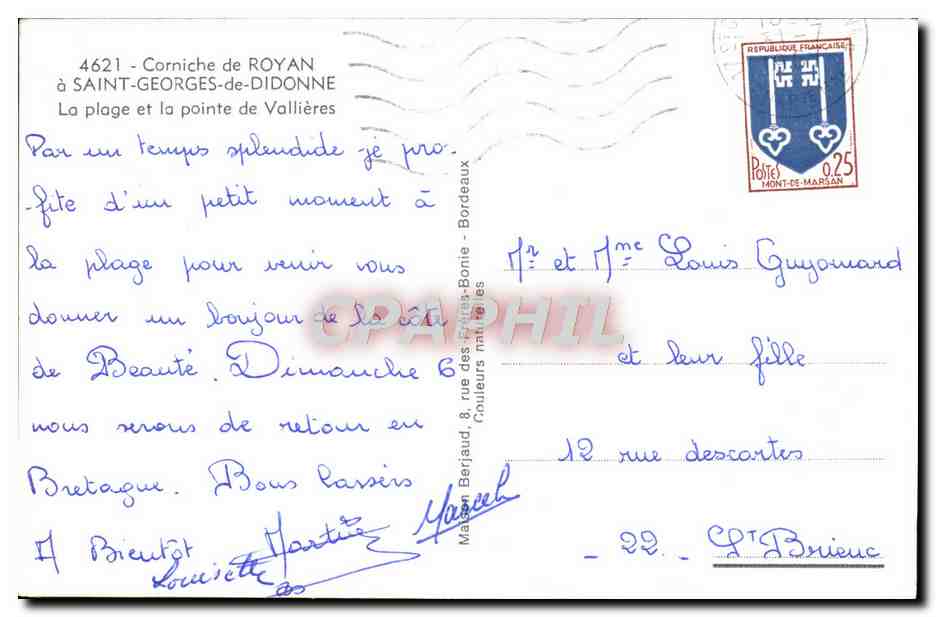 4621 - Corniche de ROYAN
à SAINT-GEORGES-de-DIDONNE
La plage et la pointe de Vallières
Par un temps splendide je pro-
-fite d'un petit moment à
la plage pour venir vous
donner un bonjour de la côte
de Beauté. Dimanche 6
nous serons de retour en
Bretagne. Bons baisers
A Bientôt
Louisette Martine Marcel
Maison Berjaud, 8, rue des-Frères-Bonie - Bordeaux
Couleurs naturelles
CPAPHIL
REPUBLIQUE FRANÇAISE
POSTES 0,25
MONT-DE-MARSAN
Mr et Mme Louis Guyomard
et leur fille
12 rue descartes
- 22 - St Brieuc